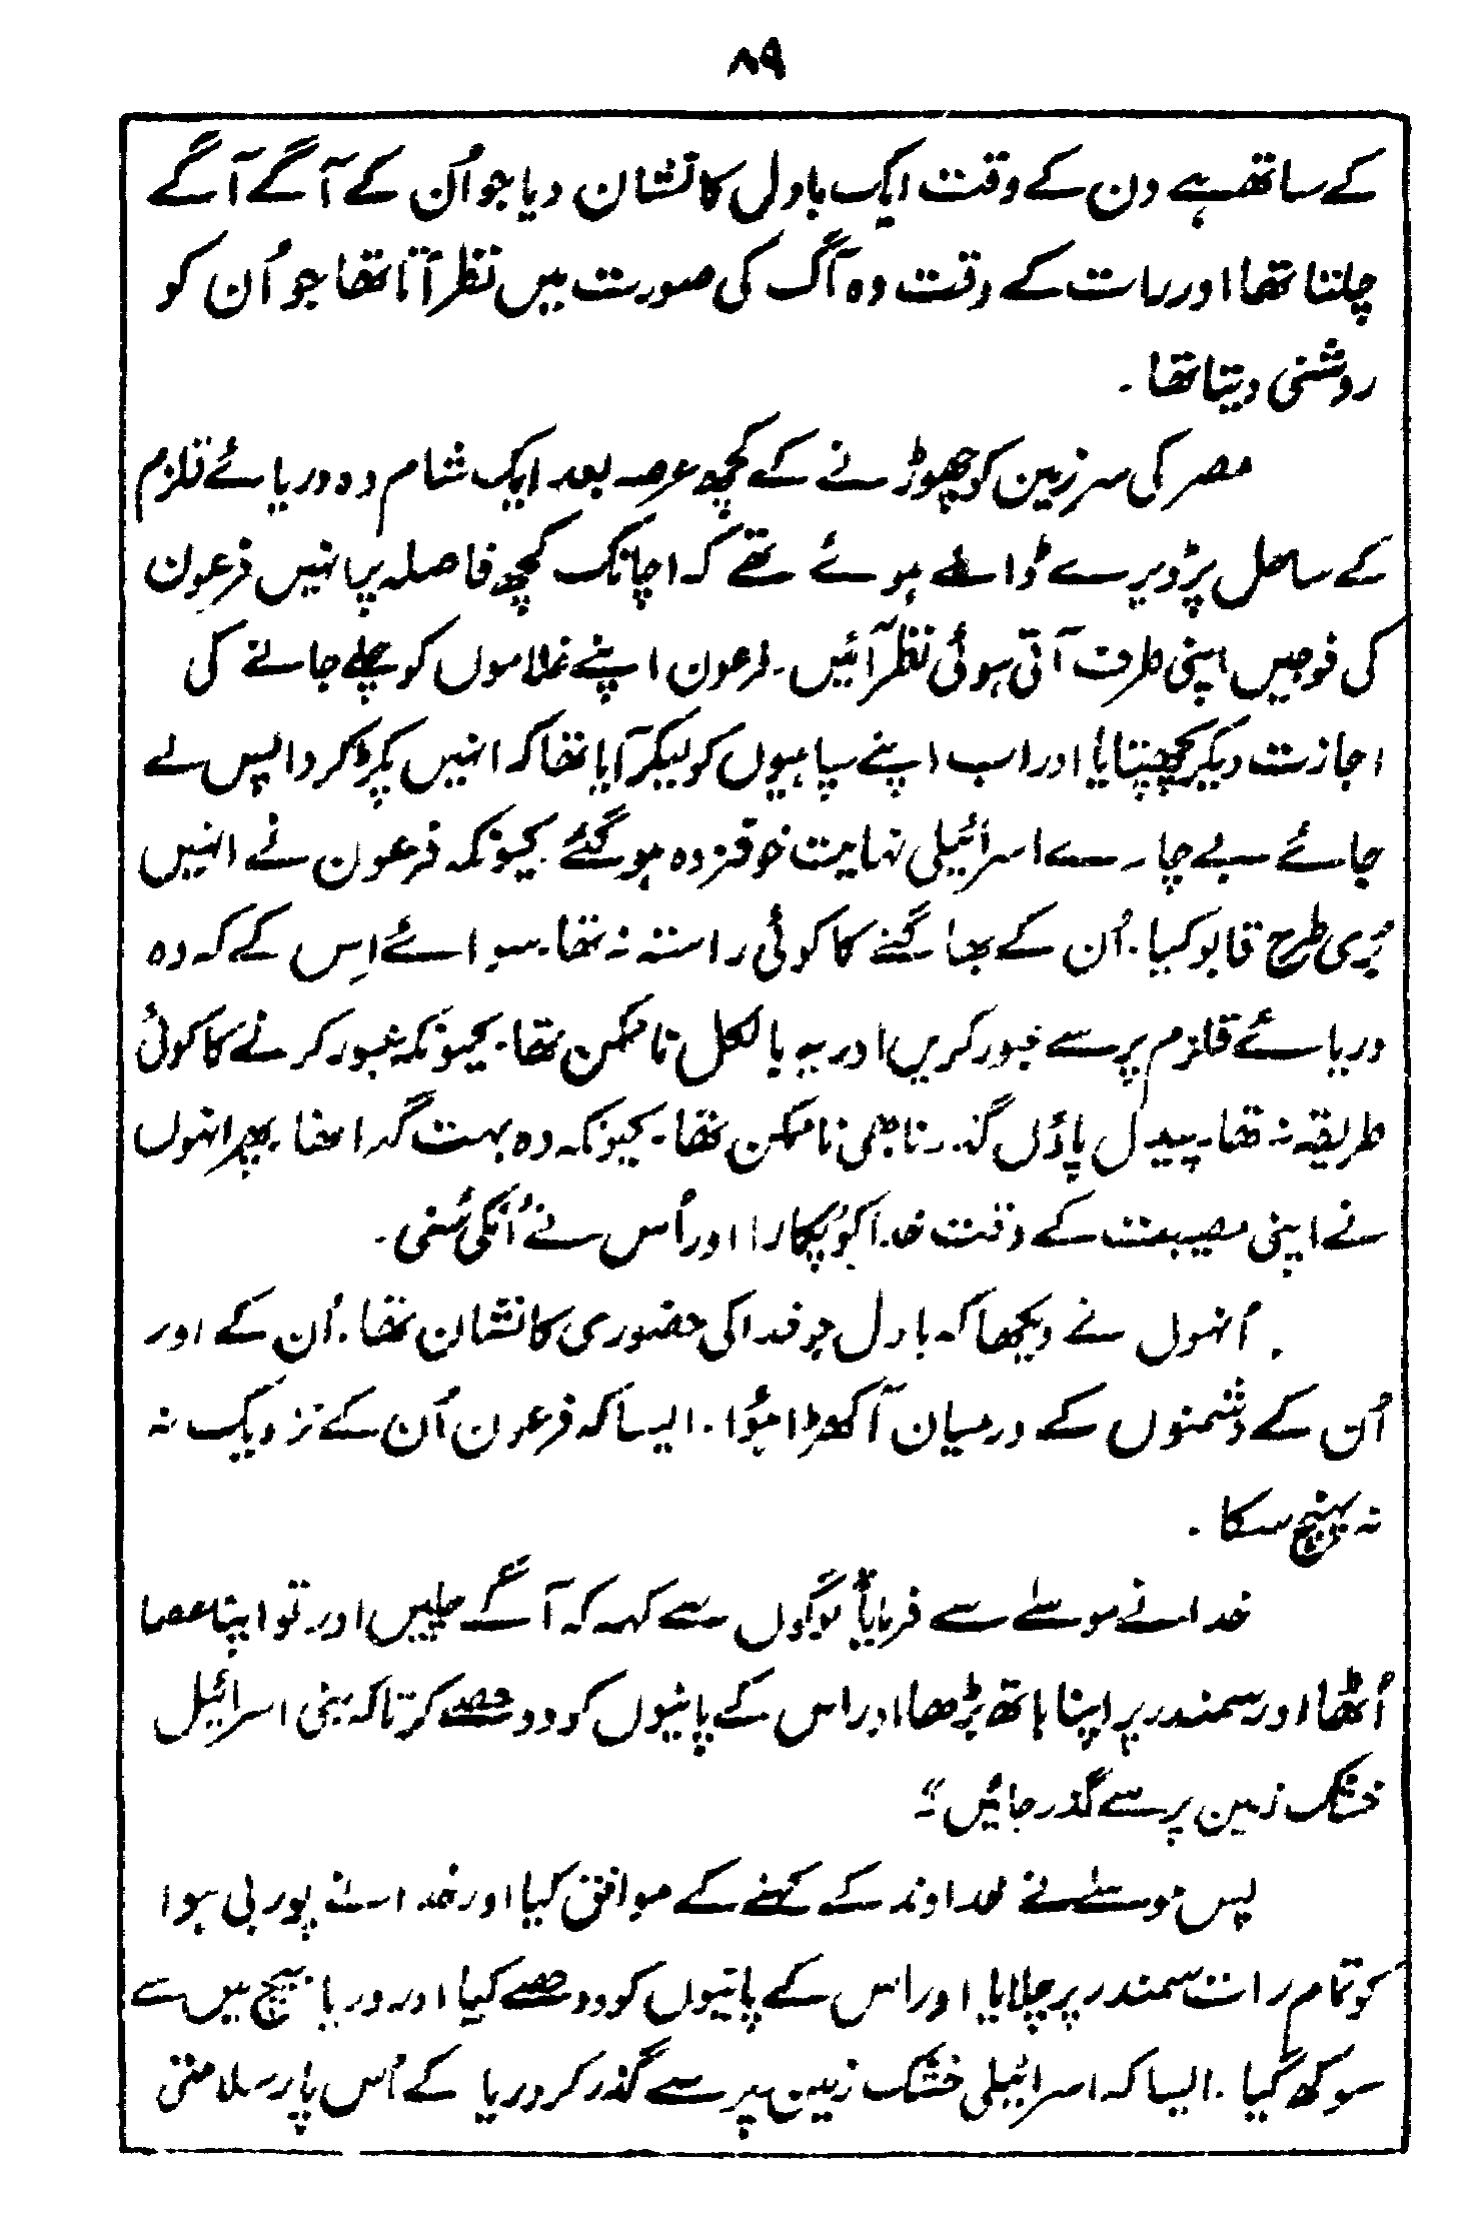 ۸۹
کے ساتھ ہے دن کے وقت ایک بادل کا نشان دیا جو اُن کے آگے آگے
چلتا تھا اور رات کے وقت وہ آگ کی صورت میں نظر آتا تھا جو اُن کو
روشنی دیتا تھا ۔
مصر کی سرزمین کو چھوڑنے کے کچھ عرصہ بعد ایک شام وہ دریائے قلزم
کے ساحل پر ڈیرے ڈالے ہوئے تھے کہ اچانک کچھ فاصلہ پر انہیں فرعون
کی فوجیں اپنی طرف آتی ہوئی نظر آئیں۔ فرعون اپنے غلاموں کو چلے جانے کی
اجازت دیکر پچھتایا اور اب اپنے سپاہیوں کو لیکر آیا تھا کہ انہیں پکڑ کر واپس لے
جائے بے چارے اسرائیلی نہایت خوفزدہ ہو گئے کیونکہ فرعون نے انہیں
بُری طرح قابو کیا۔ اُن کے بھاگنے کا کوئی راستہ نہ تھا۔ سوائے اِس کے کہ وہ
دریائے قلزم پر سے عبور کریں اور یہ بالکل ناممکن تھا۔ کیونکہ عبور کرنے کا کوئی
طریقہ نہ تھا۔ پیدل پاؤں گذرنا بھی ناممکن تھا۔ کیونکہ وہ بہت گہرا تھا۔ پھر انہوں
نے اپنی مصیبت کے وقت خدا کو پُکارا اور اُس نے اُنکی سُنی۔
اُنہوں نے دیکھا کہ بادل جو خدا کی حضوری کا نشان تھا۔ اُن کے اور
اُن کے دُشمنوں کے درمیان آکھڑا ہؤا۔ ایسا کہ فرعون اُن کے نزدیک نہ
نہ پہنچ سکا ۔
خدا نے موسےٰ سے فرمایا "لوگوں سے کہہ کہ آگے چلیں اور تو اپنا عصا
اُٹھا اور سمندر پر اپنا ہاتھ بڑھا اور اس کے پانیوں کو دو حصے کر تاکہ بنی اسرائیل
خشک زمین پر سے گذر جائیں"۔
پس موسےٰ نے خداوند کے کہنے کے موافق کیا اور خدا نے پوربی ہوا
کو تمام رات سمندر پر چلایا اور اس کے پانیوں کو دو حصے کیا اور دریا بیچ میں سے
سوکھ گیا ۔ ایسا کہ اسرائیلی خشک زمین پر سے گذر کر دریا کے اُس پار سلامتی